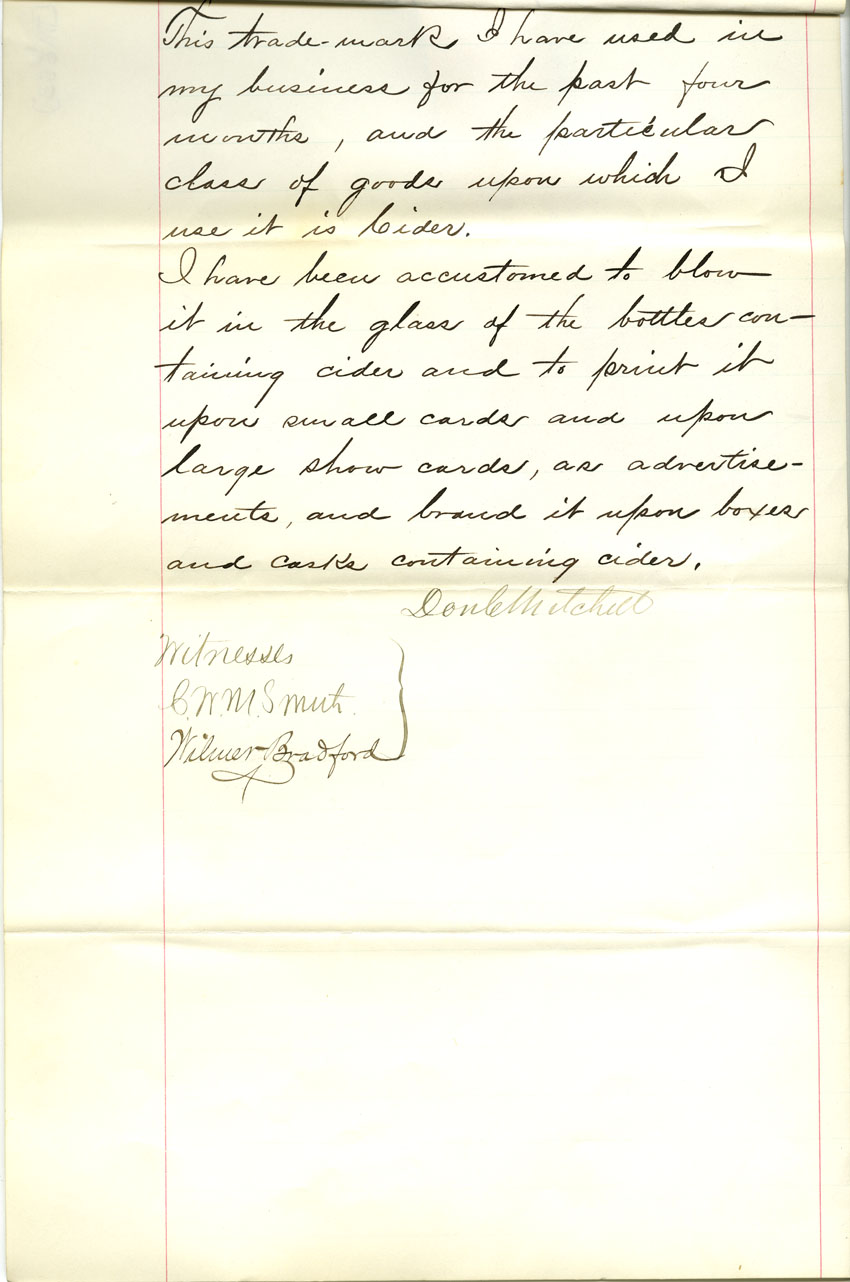 This trade-mark I have used in
my business for the past four
months, and the particular
class of goods upon which I
use it is Cider.
I have been accustomed to blow
it in the glass of the bottles con-
taining cider and to print it
upon small cards and upon
large show cards, as advertise-
ments, and brand it upon boxes
and casks containing cider.
Don C Mitchell
Witnesses
C. W. M. Smith.
Wilmer Bradford